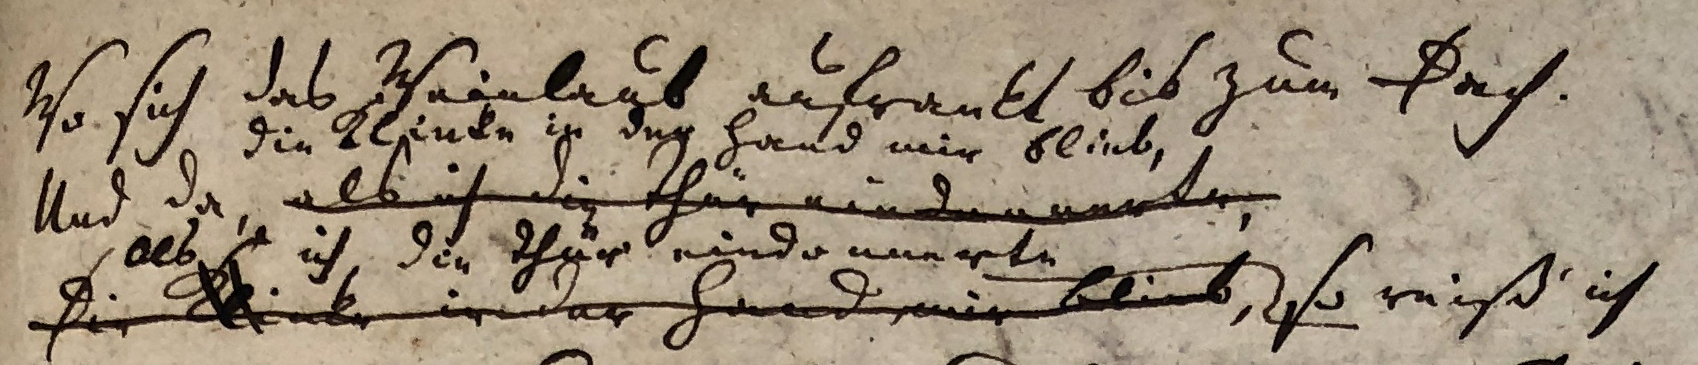 Wo sich das Weinlaub aufrankt bis zum Dach.
die Klinke in der Hand mir blieb,
Und da, als ich die Thür eindonnerte,
als ich, die Thür eindonnerte
Die Klinke in der Hand mir blieb, so reiß' ich